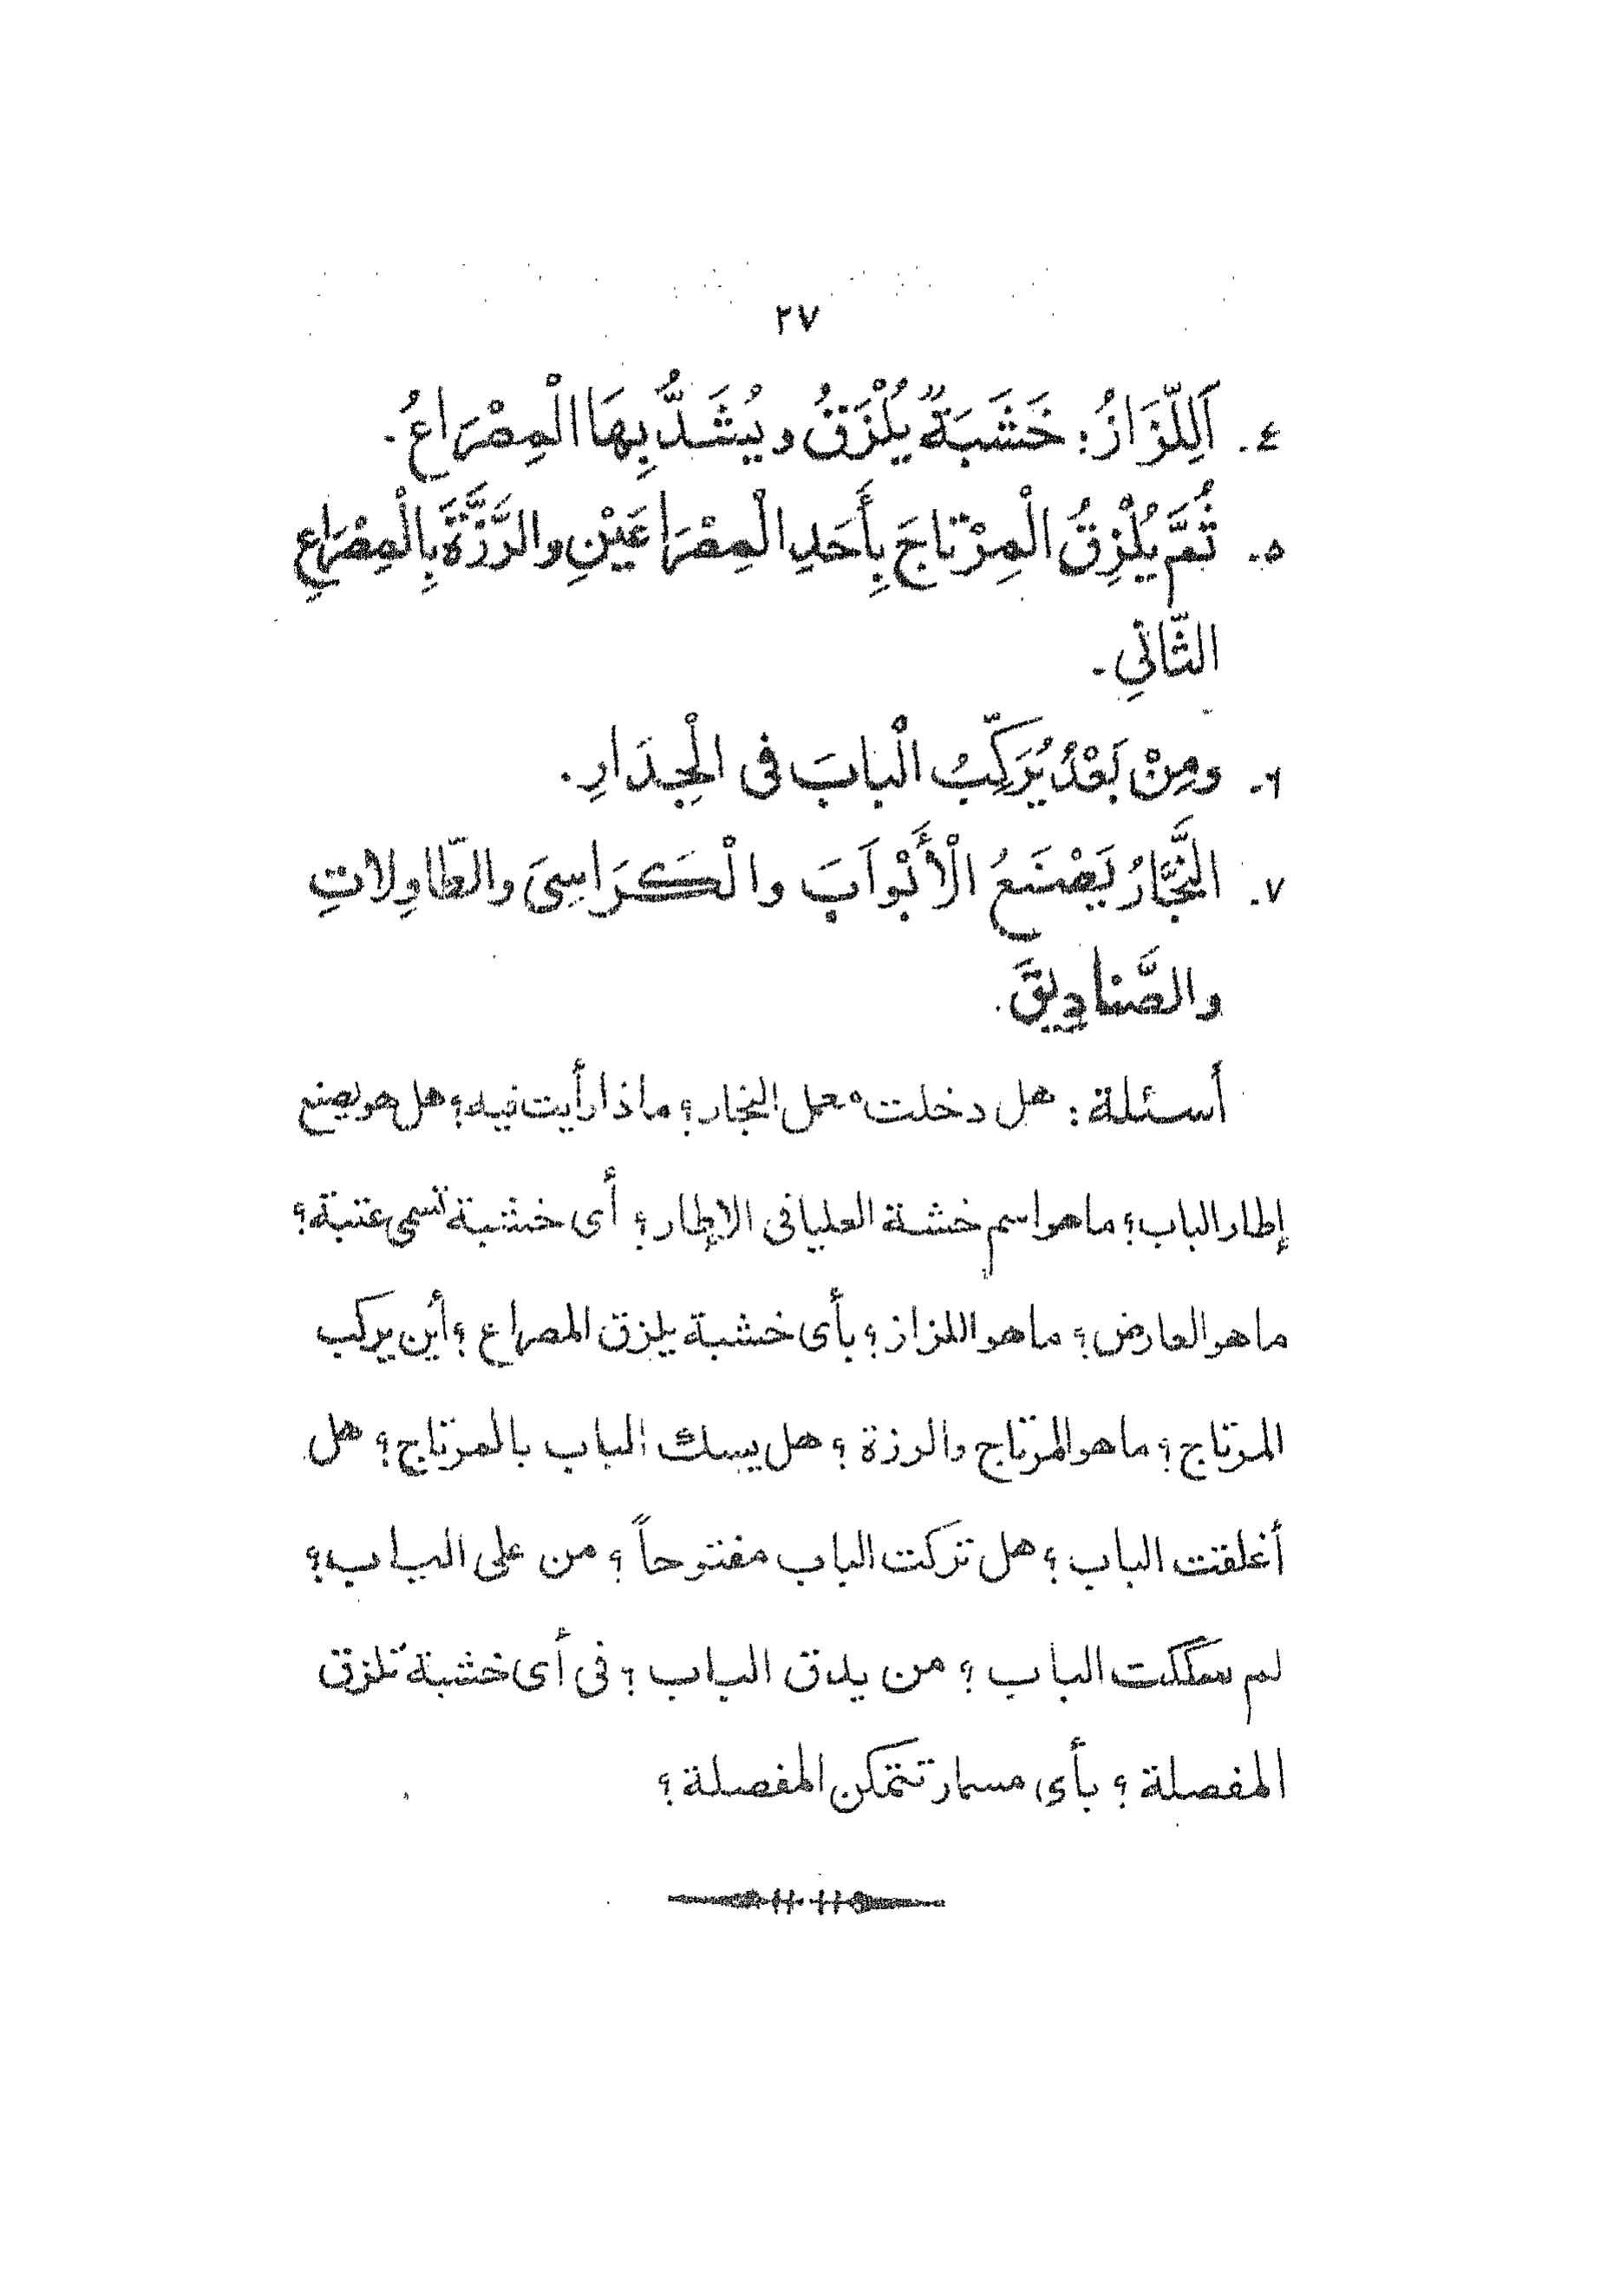 ٢٧
٤. اَللِّزَازُ: خَشَبَةٌ يُلْزَقُ ويُشَدُّ بِهَا الْمِصْرَاعُ.
٥. ثُمَّ يُلْزِقُ الْمِرْتاجَ بِأَحَدِ الْمِصْرَاعَيْنِ والرَّزَّةَ بِالْمِصْرَاعِ
الثّانِي.
٦. ومِنْ بَعْدُ يُرَكِّبُ الْبابَ فى الْجِدَارِ.
٧. النَّجَّارُ يَصْنَعُ الْأَبْوَابَ والْكَرَاسِىَ والطّاوِلاتِ
والصَّنادِيقَ.
أسئلة: هل دخلت معمل النجار؟ ماذا رأيت فيه؟ هل هو يصنع
إطار الباب؟ ما هو اسم خشبة العليا فى الإطار؟ أى خشبة تسمى عتبة؟
ما هو العارض؟ ما هو اللزاز؟ بأى خشبة يلزق المصراع؟ أين يركب
المرتاج؟ ما هو المرتاج والرزة؟ هل يسك الباب بالمرتاج؟ هل
أغلقت الباب؟ هل تركت الباب مفتوحاً؟ من على الباب؟
لم سككت الباب؟ من يدق الباب؟ فى أى خشبة تلزق
المفصلة؟ بأى مسمار تتمكن المفصلة؟